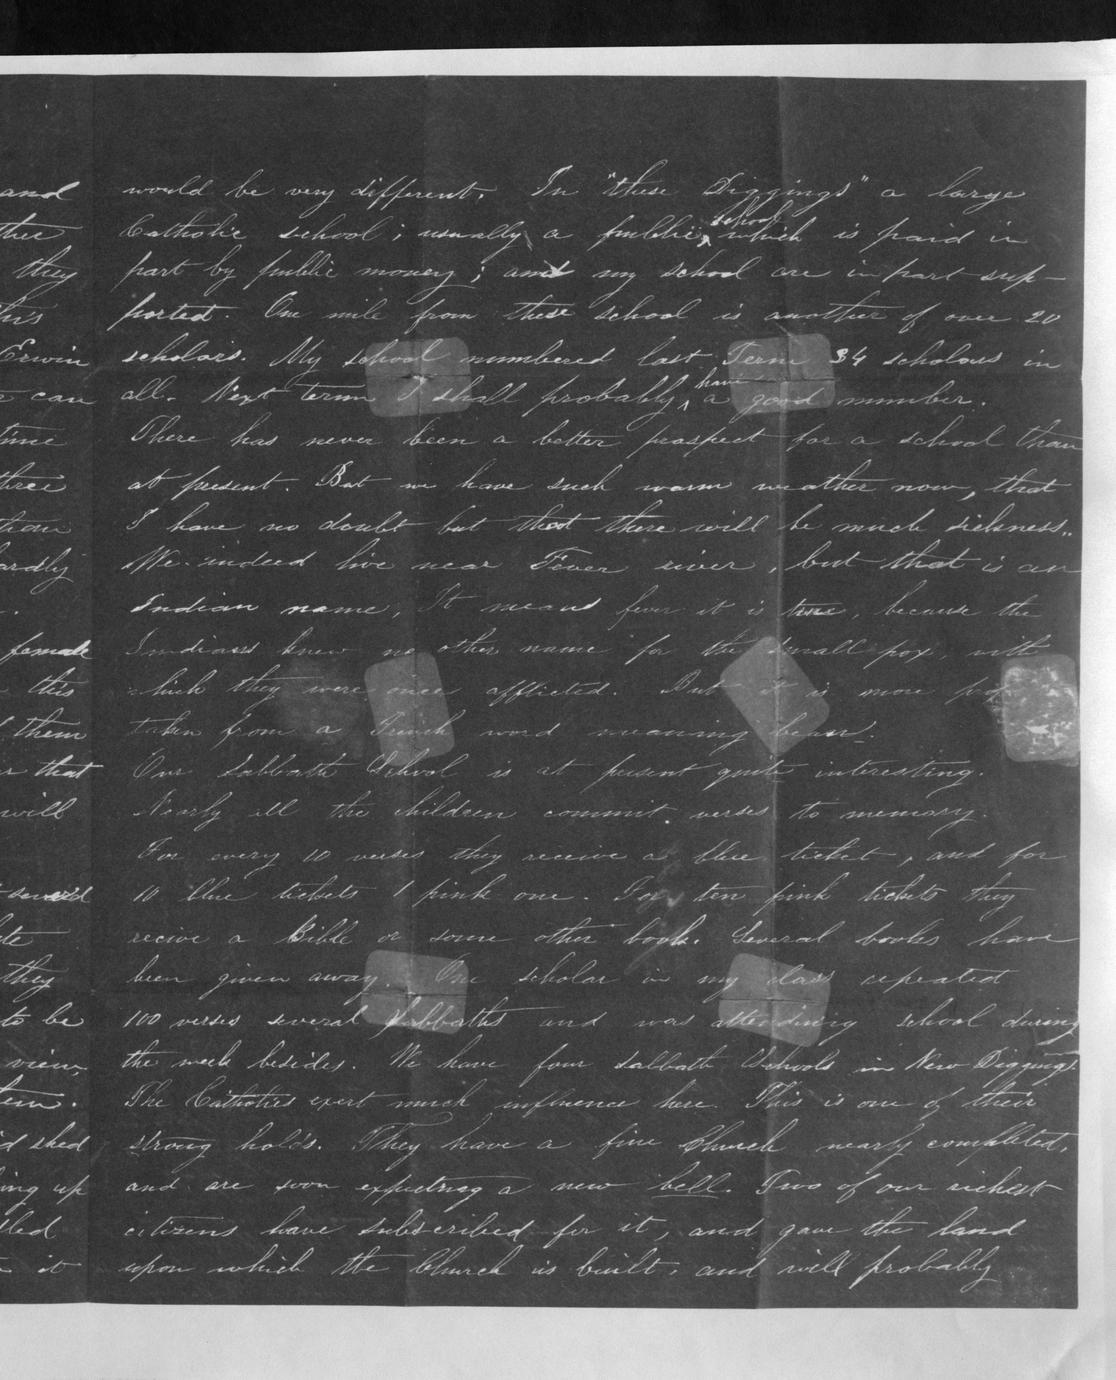 and
ther
they
this
Erwin
can
time
three
than
hardly
female
this
them
that
will
they
to be
view,
shed
ing up
it
would be very different. In "these Diggings" a large
Catholic school; usually a public, school which is paid in
part by public money; and my school are in part sup-
ported. One mile from these school is another of over 20
scholars. My school numbered last Term 34 scholars in
all. Next term I shall probably, have a good number.
There has never been a better prospect for a school than
at present. But we have such warm weather now, that
I have no doubt but that there will be much sickness..
We indeed live near Fever river, but that is an
Indian name, It means fever it is true, because the
Indians knew no other name for the small pox, with
which they were once afflicted. But it is more
taken from a French word meaning bean.
Our Sabbath School is at present quite interesting.
Nearly all the children commit verses to memory.
For every 10 verses they receive a blue ticket, and for
10 blue tickets 1 pink one. For ten pink tickets they
recive a Bible or some other book. Several books have
been given away. One scholar in my class repeated
100 verses several Sabbaths and was attending school during
the week besides. We have four Sabbath Schools in New Diggings.
The Catholics exert much influence here. This is one of their
strong holds. They have a fine Church nearly completed,
and are soon expecting a new bell. Two of our richest
citizens have subscribed for it, and gave the land
upon which the Church is built, and will probably